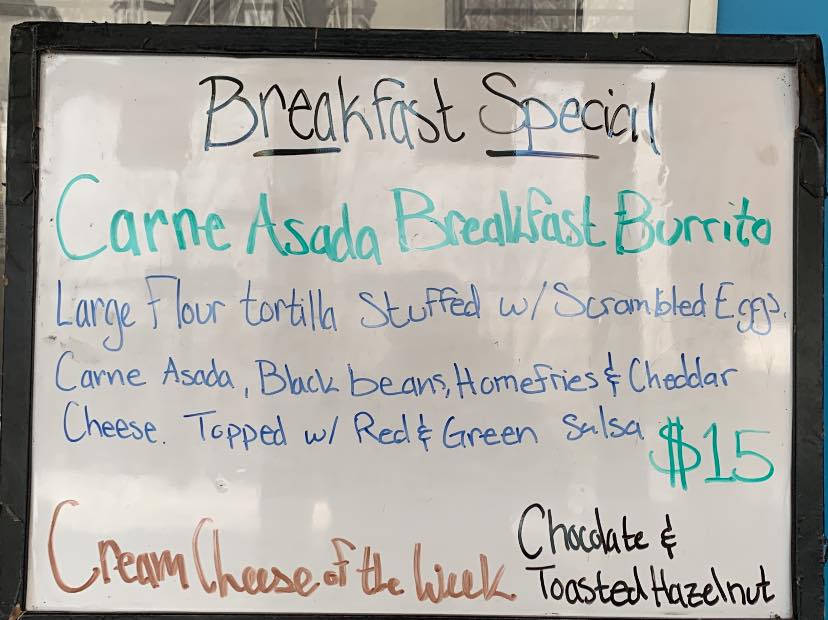 Breakfast Special
Carne Asada Breakfast Burrito
Large Flour tortilla Stuffed w/ Scrambled Eggs.
Carne Asada, Black beans, Homefries & Cheddar
Cheese. Topped w/ Red & Green Salsa
$15
Cream Cheese of the Week.
Chocolate &
Toasted Hazelnut